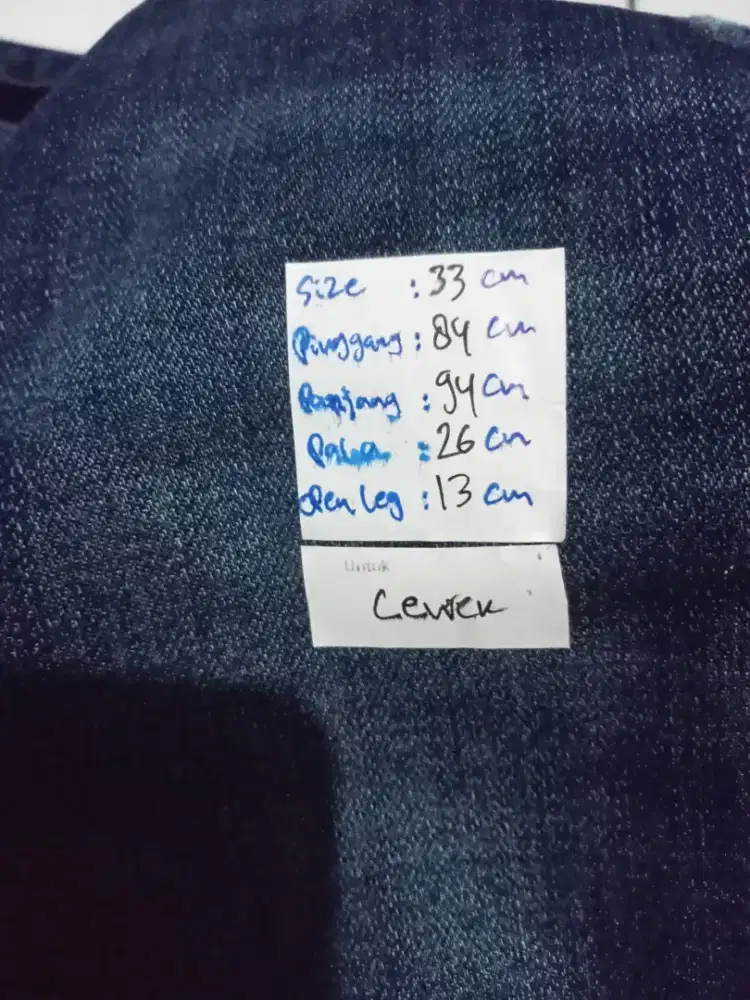 Size : 33 cm
Pinggang : 84 cm
Panjang : 94 cm
Paha : 26 cm
Open leg : 13 cm
Untuk
Cewek